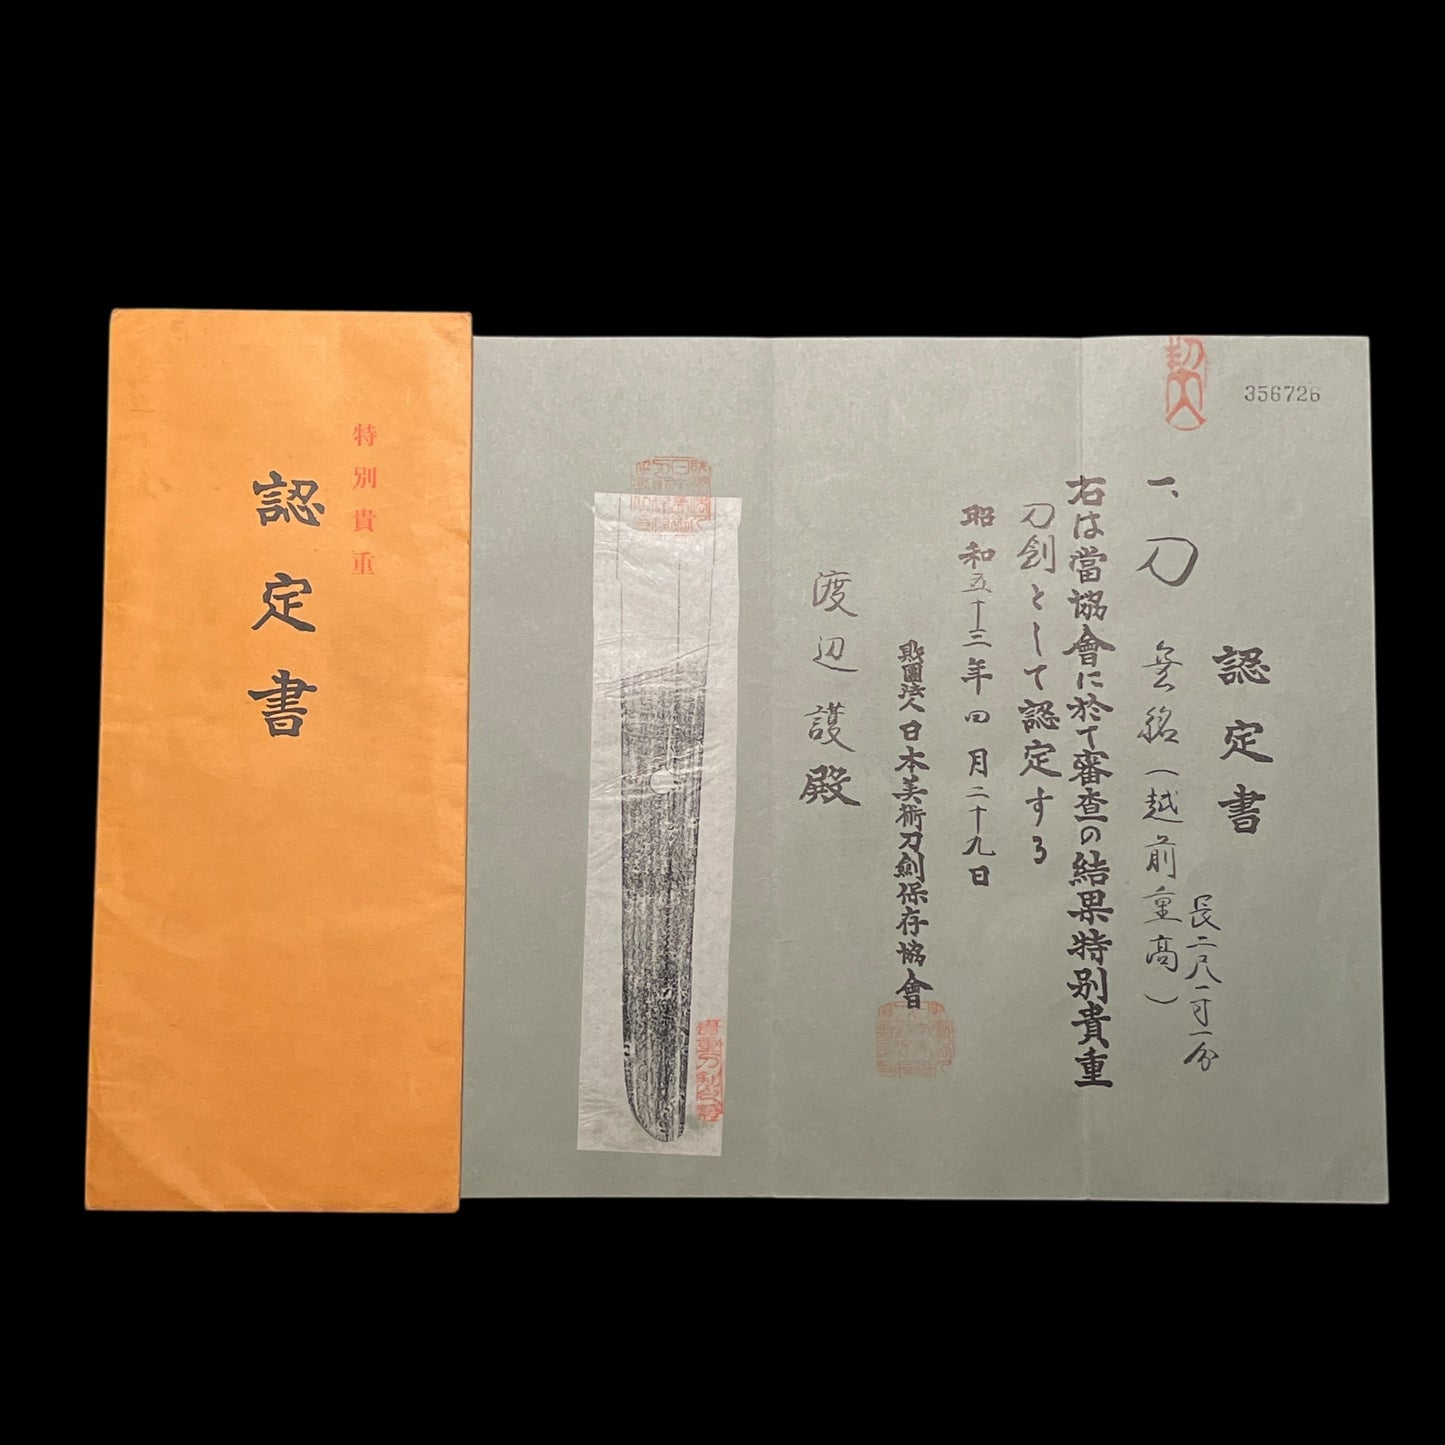 特別貴重
認定書
356726
認定書
一、刀 無銘(越前重高)
長二尺一寸一分
右は當協會に於て審査の結果特別貴重
刀劍として認定する
昭和五十三年四月二十九日
財團法人日本美術刀劍保存協會
渡辺護殿
貴重刀剣之證